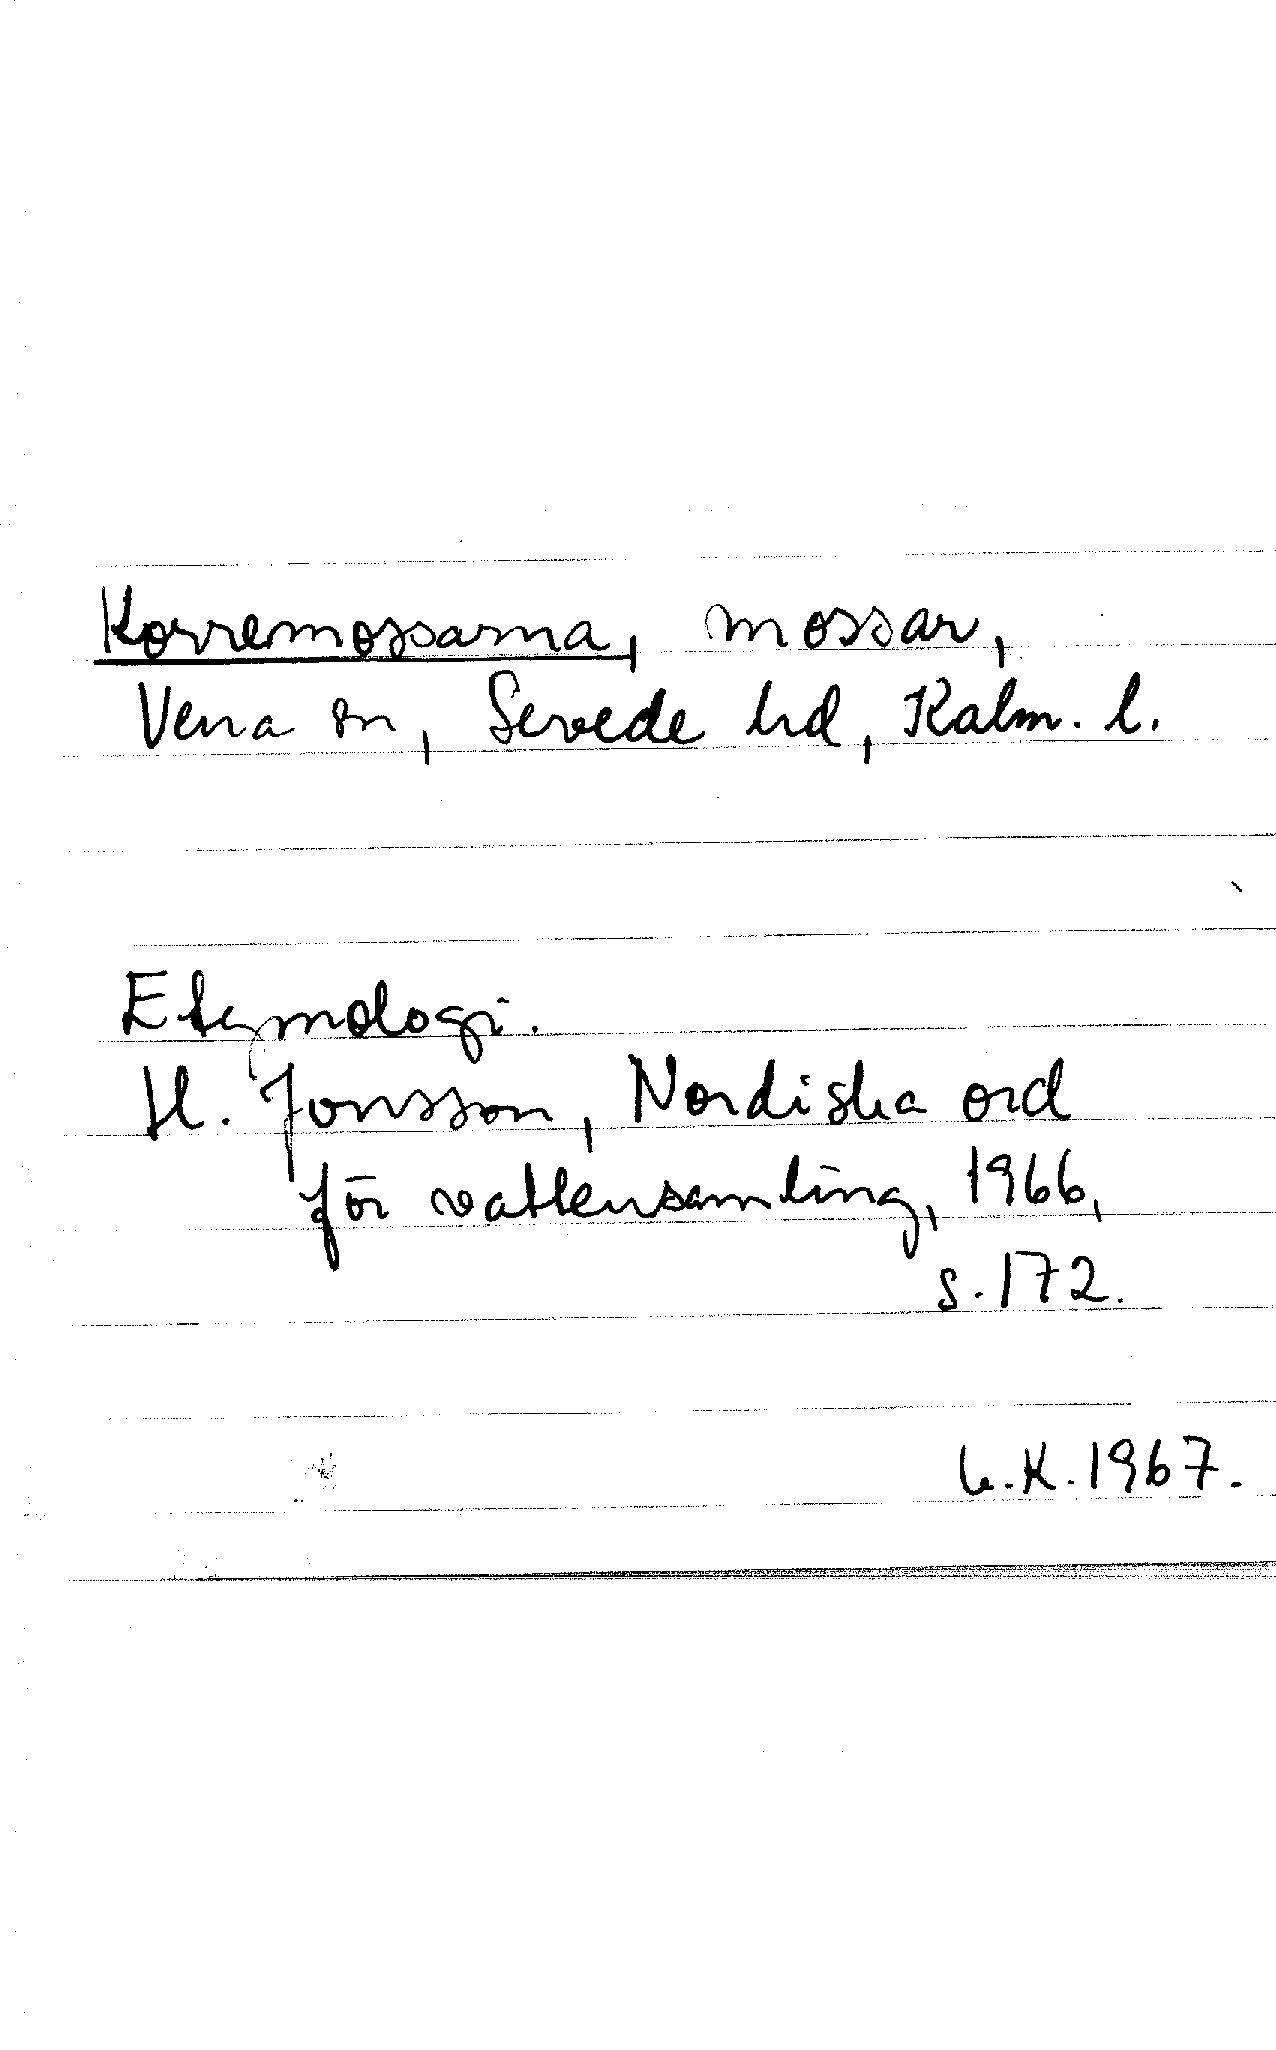 Korremossarna, mossar,
Vena sn, Sevede hd, Kalm. l.
Etymologi.
H. Jonsson, Nordiska ord
för vattensamling, 1966,
s. 172.
K. 1967.